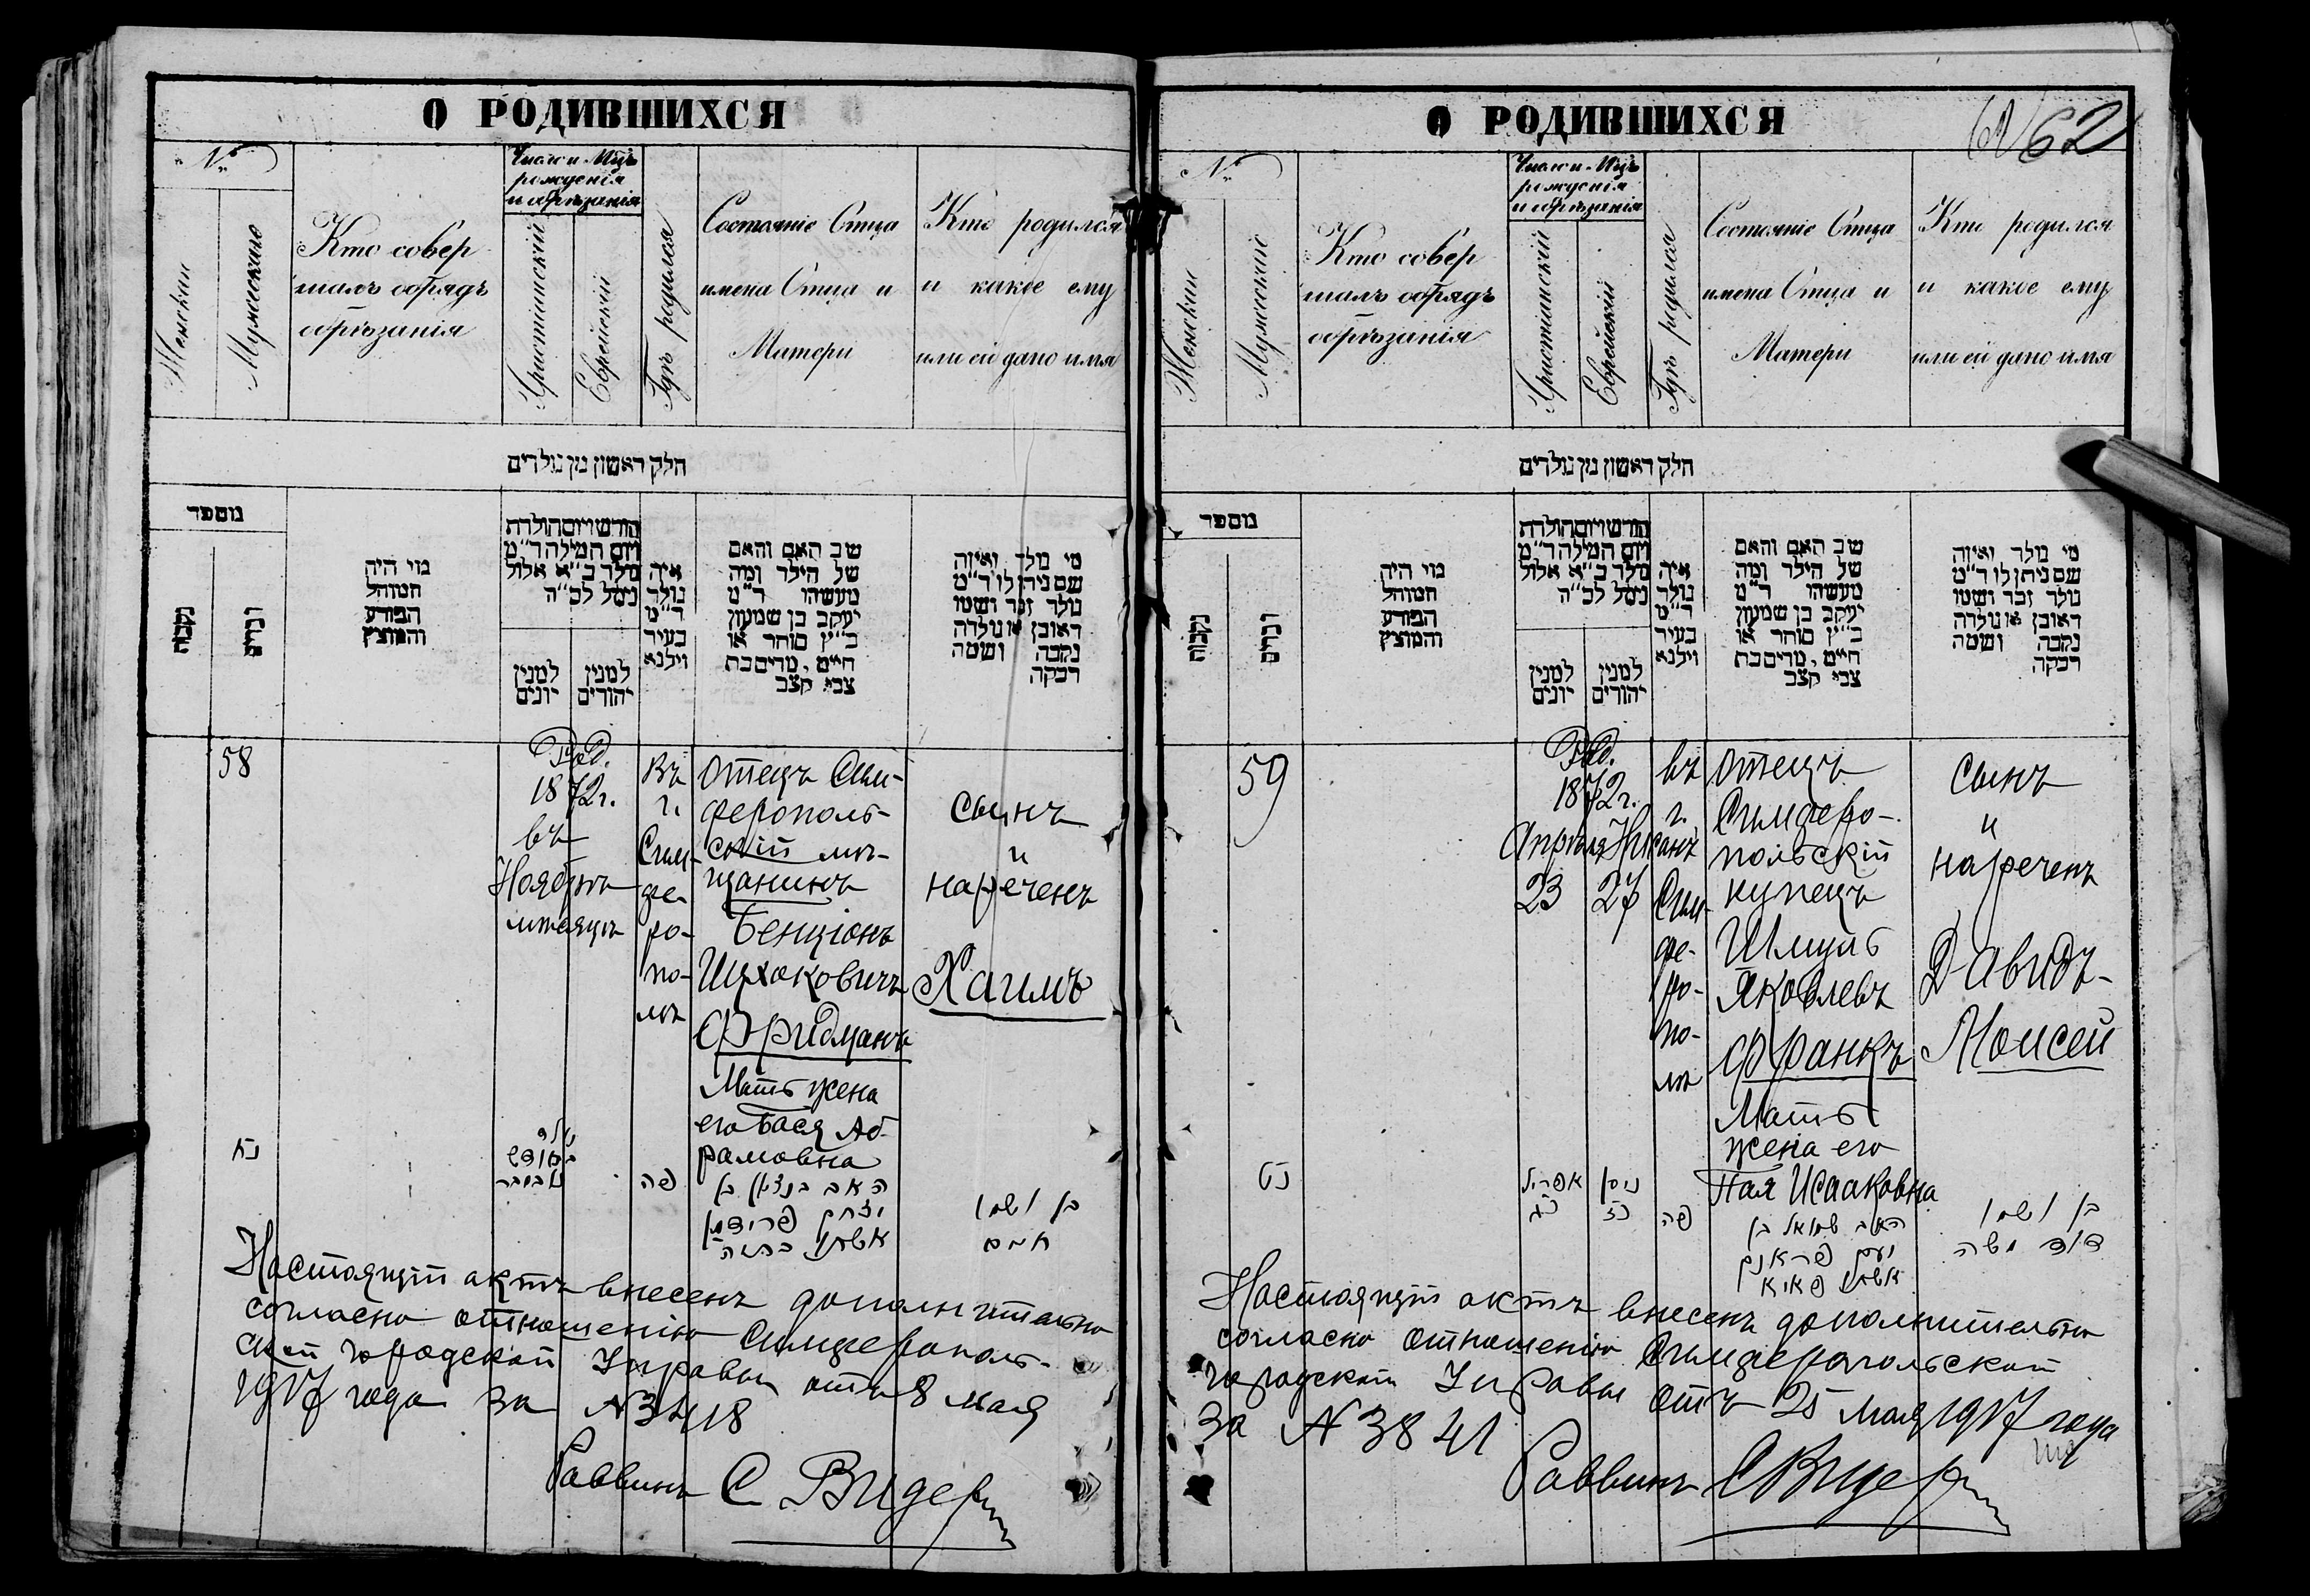 О РОДИВШИХСЯ
№
Женскии
Мужескаго
Кто совер
шалъ обрядъ
обрѣзанія
Число и Мцъ
рожденія
и обрѣзанія
Христіанскій
Еврейскій
Гдѣ родился
Состояніе Отца
имена Отца и
Матери
Кто родился
и какое ему
или ей дано имя
חלק ראשון מן נולדים
מספר
נקבות
זכרים
מי היה
המוהל
הפורע
והמוצץ
חודש ויום הולדת
ויום המילה ד״מ
נולד כ״א אלול
נימל לכ״ה
למנין
יונים
למנין
יהודים
איה
נולד
ד״מ
בעיר
וילנא
שב האם והאם
של הילד ומה
מעשהו ד״מ
יעקב בן שמעון
כ״ץ סוחר או
חייט, מרים בת
צבי קצב
מי נולד ואיזה
שם ניתן לו ד״מ
נולד זכר ושמו
ראובן או נולדה
נקבה ושמה
רבקה
58
Род.
1872 г.
въ
Ноябрѣ
мѣсяцѣ
Въ
г.
Сим-
фе-
ро-
по-
лѣ
Отецъ Сим-
ферополь-
скій мѣ-
щанинъ
Бенціонъ
Ицхаковичъ
Фридманъ
Мать жена
его Бася Аб-
рамовна
сынъ
и
нареченъ
Хаимъ
נח
נולד
בחודש
נובמבר
פה
האב בנציון בן
יצחק פרידמן
אשתו
בן ושמו
חיים
Настоящій актъ внесенъ дополнительно
согласно отношенію Симферополь-
ской Городской Управы отъ 8 мая
1917 года за № 3418
Раввинъ С Видер
О РОДИВШИХСЯ
62
№
Женскии
Мужескии
Кто совер
шалъ обрядъ
обрѣзанія
Число и Мцъ
рожденія
и обрѣзанія
Христіанскій
Еврейскій
Гдѣ родился
Состояніе Отца
имена Отца и
Матери
Кто родился
и какое ему
или ей дано имя
חלק ראשון מן נולדים
מספר
נקבות
זכרים
מי היה
המוהל
הפורע
והמוצץ
חודש ויום הולדת
ויום המילה ד״מ
נולד כ״א אלול
נימל לכ״ה
למנין
יונים
למנין
יהודים
איה
נולד
ד״מ
בעיר
וילנא
שב האם והאם
של הילד ומה
מעשהו ד״מ
יעקב בן שמעון
כ״ץ סוחר או
חייט, מרים בת
צבי קצב
מי נולד ואיזה
שם ניתן לו ד״מ
נולד זכר ושמו
ראובן או נולדה
נקבה ושמה
רבקה
59
Род.
1872 г.
Апрѣля
23
Нисанъ
27
въ
г.
Сим-
фе-
ро-
по-
лѣ
Отецъ
Симферо-
польскій
купецъ
Шмуль
Яковлевъ
Франкъ
Мать
жена его
Пая Исааковна
сынъ
и
нареченъ
Давидъ-
Моисей
נט
אפריל
כג
ניסן
כז
פה
האב שמואל בן
יעקב פראנק
אשתו פאיא
בן ושמו
דוד משה
Настоящій актъ внесенъ дополнительно
согласно отношенію Симферопольской
городской Управы отъ 25 мая 1917 года
за № 3841
Раввинъ С Видер